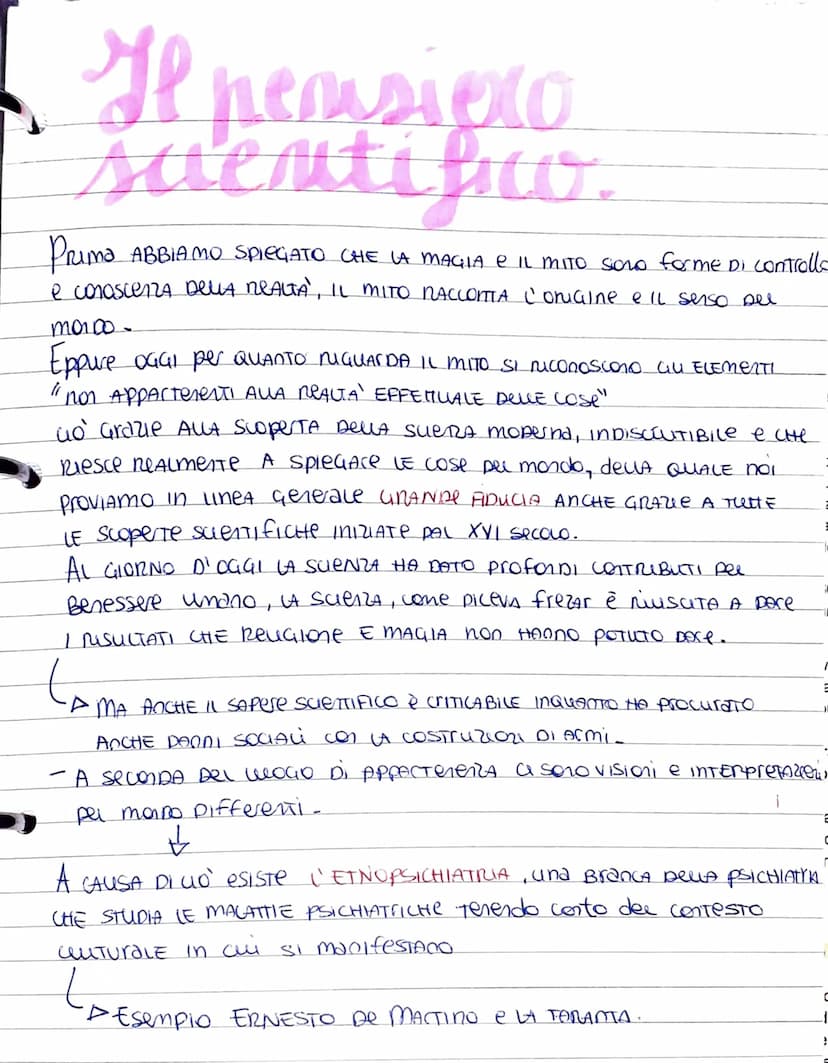 Il pensiero
scientifico.
Prima ABBIAMO SPIEGATO CHE LA MAGIA e IL MITO sono forme DI controllo
e conoscenza DELLA REALTÀ, IL MITO RACCONTA l'origine e IL senso DEL
mondo.
Eppure OGGI per QUANTO RIGUARDA IL MITO SI RICONOSCONO GLI ELEMENTI
"non APPARTENENTI ALLA REALTÀ EFFETTUALE DELLE COSE"
CIÒ GRAZIE ALLA SCOPERTA DELLA SCIENZA MODERNA, INDISCUTIBILE e CHE
RIESCE REALMENTE A SPIEGARE LE COSE DEL MONDO, DELLA QUALE noi
PROVIAMO IN LINEA Generale GRANDE FIDUCIA ANCHE GRAZIE A TUTTE
LE SCOPERTE SCIENTIFICHE INIZIATE DAL XVI SECOLO.
AL GIORNO D'OGGI LA SCIENZA HA DATO PROFONDI CONTRIBUTI PER
Benessere umano, LA SCIENZA, come DICEVA frezar è RIUSCITA A DARE
I RISULTATI CHE RELIGIONE E MAGIA non HANNO POTUTO DARE.
MA ANCHE IL SAPERE SCIENTIFICO è CRITICABILE INQUANTO HA PROCURATO
ANCHE DANNI SOCIALI con LA COSTRUZIONI DI ARMI.
- A SECONDA DEL LUOGO DI APPARTENENZA CI SONO VISIONI e INTERPRETAZIONI
DEL MONDO DIFFERENTI.
A CAUSA DI CIÒ esiste l'ETNOPSICHIATRIA, una BRANCA DELLA PSICHIATRIA
CHE STUDIA LE MALATTIE PSICHIATRICHE Tenendo conto del contesto
CULTURALE in cui si manifestano
Esempio ERNESTO De MARTINO e LA TARANTA.